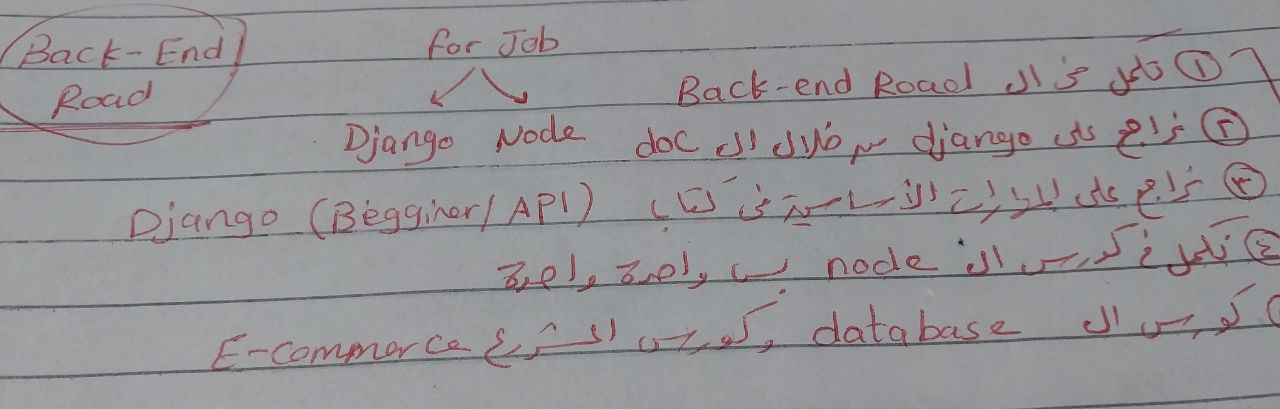 Back-End Road
for Job
Django Node
① تكمل في ال Back-end Road
② تراجع على django من خلال ال doc
③ تراجع على المهارات الأساسية في كتاب Django (Begginer/API)
④ تكمل في كورس ال node بس واحدة واحدة
كورس ال database وكورس المشروع E-commerce